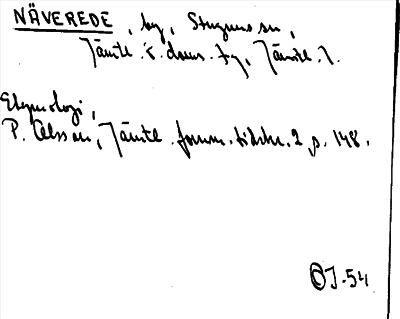 NÄVEREDE, by, Stuguns sn,
Jämtl. s. doms. fg, Jämtl. l.
Etymologi,
P. Olsson, Jämtl. fornm. tidskr. 2, s. 148.
OJ-54